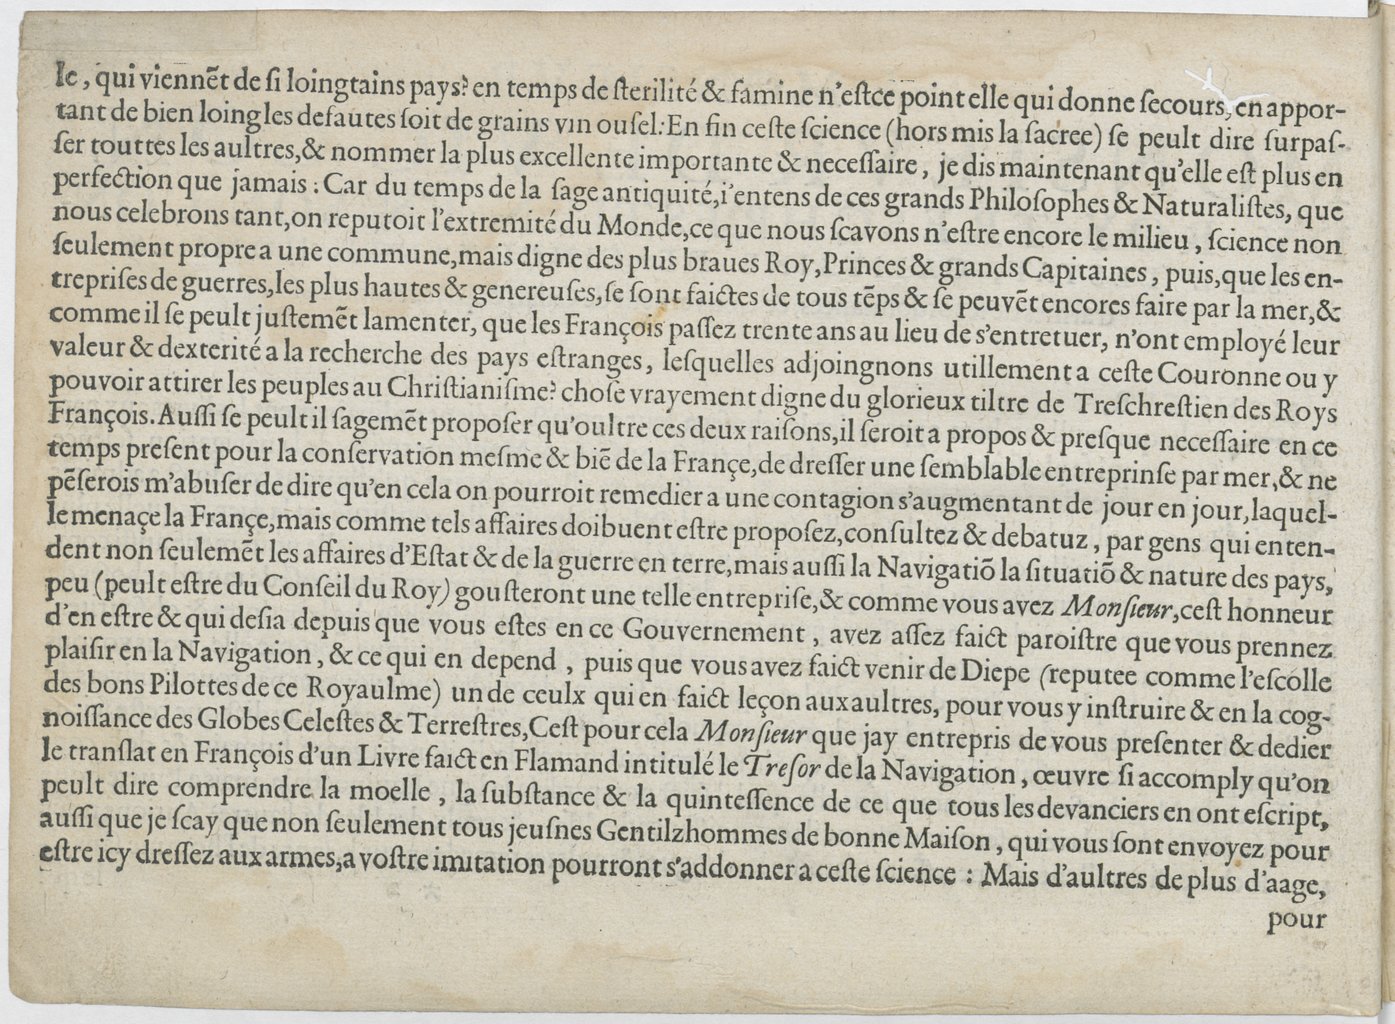 le, qui viennēt de ſi loingtains pays? en temps de ſterilité & famine n'eſtce point elle qui donne ſecours, en appor-
tant de bien loing les defautes ſoit de grains vin ou ſel: En fin ceſte ſcience (hors mis la ſacree) ſe peult dire ſurpaſ-
ſer touttes les aultres, & nommer la plus excellente importante & neceſſaire, je dis maintenant qu'elle eſt plus en
perfection que jamais: Car du temps de la ſage antiquité, i'entens de ces grands Philoſophes & Naturaliſtes, que
nous celebrons tant, on reputoit l'extremité du Monde, ce que nous ſcavons n'eſtre encore le milieu, ſcience non
ſeulement propre a une commune, mais digne des plus braues Roy, Princes & grands Capitaines, puis, que les en-
trepriſes de guerres, les plus hautes & genereuſes, ſe ſont faictes de tous tēps & ſe peuvēt encores faire par la mer, &
comme il ſe peult juſtemēt lamenter, que les François paſſez trente ans au lieu de s'entretuer, n'ont employé leur
valeur & dexterité a la recherche des pays eſtranges, leſquelles adjoingnons utillement a ceſte Couronne ou y
pouvoir attirer les peuples au Chriſtianiſme? choſe vrayement digne du glorieux tiltre de Treſchreſtien des Roys
François. Auſſi ſe peult il ſagemēt propoſer qu'oultre ces deux raiſons, il ſeroit a propos & preſque neceſſaire en ce
temps preſent pour la conſervation meſme & biē de la Françe, de dreſſer une ſemblable entreprinſe par mer, & ne
pēſerois m'abuſer de dire qu'en cela on pourroit remedier a une contagion s'augmentant de jour en jour, laquel-
le menaçe la Françe, mais comme tels affaires doibuent eſtre propoſez, conſultez & debatuz, par gens qui enten-
dent non ſeulemēt les affaires d'Eſtat & de la guerre en terre, mais auſſi la Navigatiō la ſituatiō & nature des pays,
peu (peult eſtre du Conſeil du Roy) gouſteront une telle entrepriſe, & comme vous avez Monſieur, ceſt honneur
d'en eſtre & qui deſia depuis que vous eſtes en ce Gouvernement, avez aſſez faict paroiſtre que vous prennez
plaiſir en la Navigation, & ce qui en depend, puis que vous avez faict venir de Diepe (reputee comme l'eſcolle
des bons Pilottes de ce Royaulme) un de ceulx qui en faict leçon aux aultres, pour vous y inſtruire & en la cog-
noiſſance des Globes Celeſtes & Terreſtres, Ceſt pour cela Monſieur que jay entrepris de vous preſenter & dedier
le tranſlat en François d'un Livre faict en Flamand intitulé le Treſor de la Navigation, œuvre ſi accomply qu'on
peult dire comprendre la moelle, la ſubſtance & la quinteſſence de ce que tous les devanciers en ont eſcript,
auſſi que je ſcay que non ſeulement tous jeuſnes Gentilzhommes de bonne Maiſon, qui vous ſont envoyez pour
eſtre icy dreſſez aux armes, a voſtre imitation pourront s'addonner a ceſte ſcience: Mais d'aultres de plus d'aage,
pour